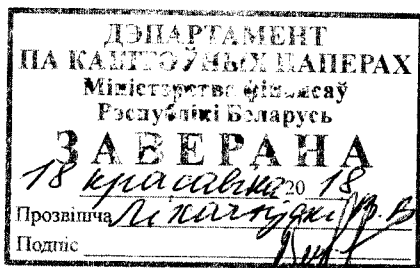 ДЭПАРТАМЕНТ
ПА КАШТОЎНЫХ ПАПЕРАХ
Міністэрства фінансаў
Рэспублікі Беларусь
ЗАВЕРАНА
18 красавіка 20 18
Прозвішча В.В
Подпіс